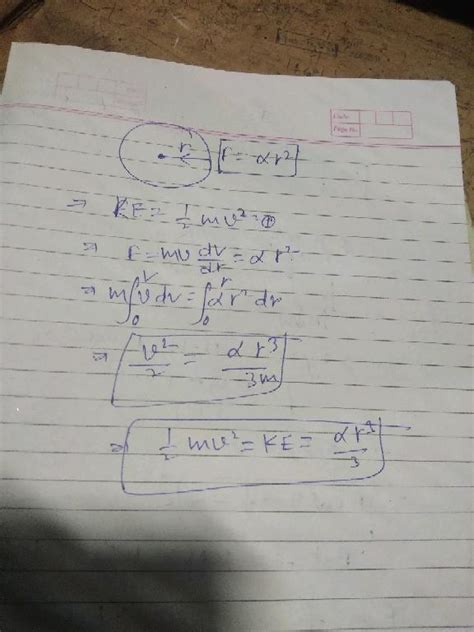 Date
Page No.
r [F = αr²]
⇒ KE = 1/2 mv² = ①
⇒ F = mv dv/dr = αr²
⇒ m∫₀ᵛ v dv = ∫₀ʳ αr² dr
⇒ v²/2 = αr³/3m
⇒ 1/2 mv² = KE = αr³/3